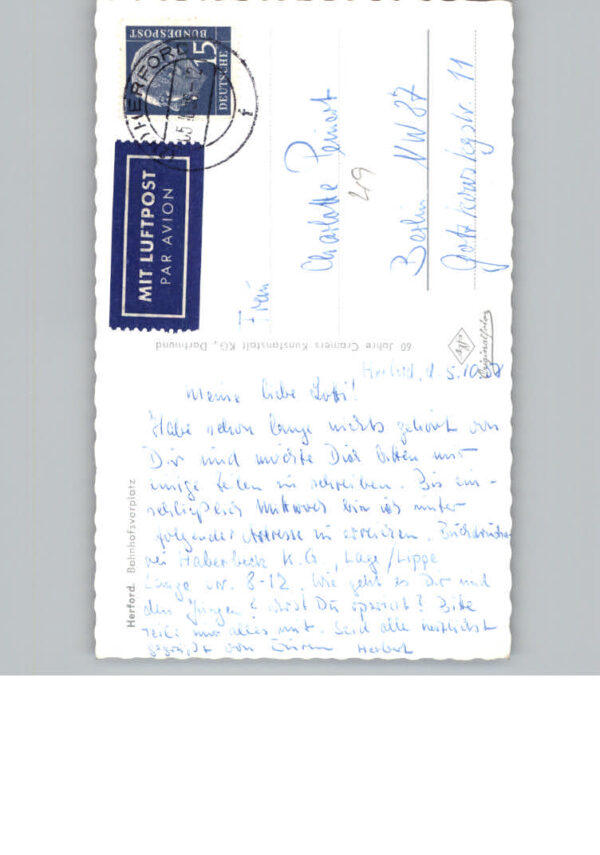 DEUTSCHE
BUNDESPOST
15
HERFORD
MIT LUFTPOST
PAR AVION
Frau
Charlotte Peinert
49
Berlin NW 87
Gotzkowskystr. 11
60 Jahre Cramers Kunstanstalt KG., Dortmund
Agfa
Originalfoto
Herford. Bahnhofsvorplatz
Herford, d. 5.10.58
Meine liebe Lotti!
Habe schon lange nichts gehört von
Dir und möchte Dich bitten mir
einige Zeilen zu schreiben. Bis ein-
schließlich Mittwoch bin ich unter
folgender Adresse zu erreichen. Buchdrucke-
rei Haberbeck K.G., Lage/Lippe
Lange Str. 8-12. Wie geht es Dir und
den Jungen? Bist Du Bitte
teile mir alles mit. Seid alle herzlichst
gegrüßt von Eurem Herbert